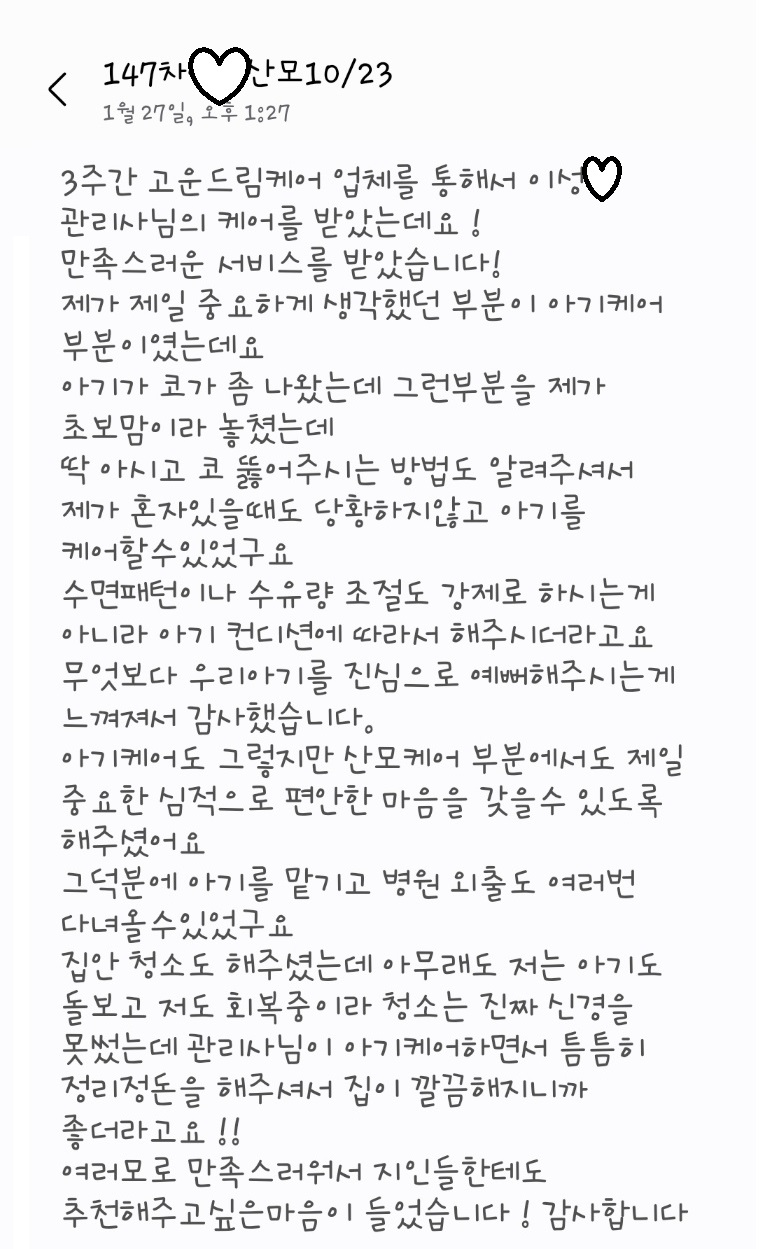 147차 산모10/23
1월 27일, 오후 1:27
3주간 고운드림케어 업체를 통해서 이성
관리사님의 케어를 받았는데요 !
만족스러운 서비스를 받았습니다!
제가 제일 중요하게 생각했던 부분이 아기케어
부분이였는데요
아기가 코가 좀 나왔는데 그런부분을 제가
초보맘이라 놓쳤는데
딱 아시고 코 뚫어주시는 방법도 알려주셔서
제가 혼자있을때도 당황하지않고 아기를
케어할수있었구요
수면패턴이나 수유량 조절도 강제로 하시는게
아니라 아기 컨디션에 따라서 해주시더라고요
무엇보다 우리아기를 진심으로 예뻐해주시는게
느껴져서 감사했습니다.
아기케어도 그렇지만 산모케어 부분에서도 제일
중요한 심적으로 편안한 마음을 갖을수 있도록
해주셨어요
그덕분에 아기를 맡기고 병원 외출도 여러번
다녀올수있었구요
집안 청소도 해주셨는데 아무래도 저는 아기도
돌보고 저도 회복중이라 청소는 진짜 신경을
못썼는데 관리사님이 아기케어하면서 틈틈히
정리정돈을 해주셔서 집이 깔끔해지니까
좋더라고요 !!
여러모로 만족스러워서 지인들한테도
추천해주고싶은마음이 들었습니다 ! 감사합니다